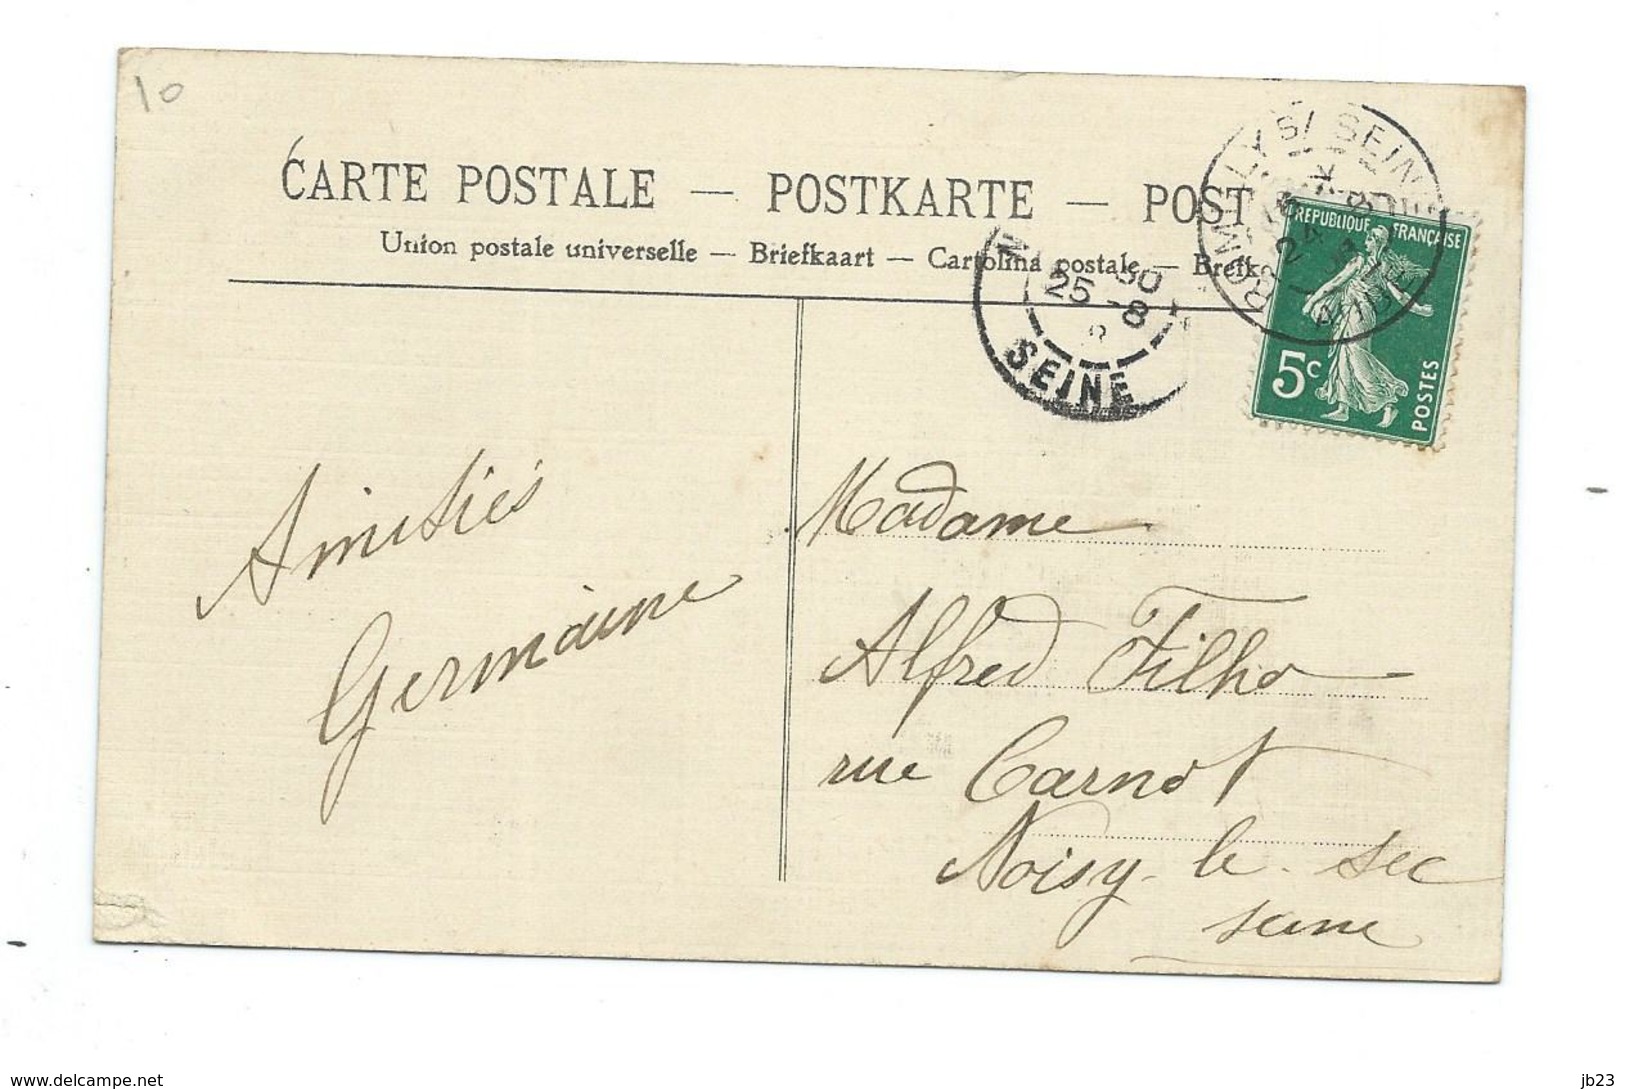 10
CARTE POSTALE — POSTKARTE — POST
Union postale universelle — Briefkaart — Cartolina postale — Brefk
ROMILLY S/ SEINE
24
AUBE
25 -8
SEINE
REPUBLIQUE FRANÇAISE
5c
POSTES
Amitiés
Germaine
Madame
Alfred Filho
rue Carnot
Noisy-le-Sec
Seine
delcampe.net
jb23